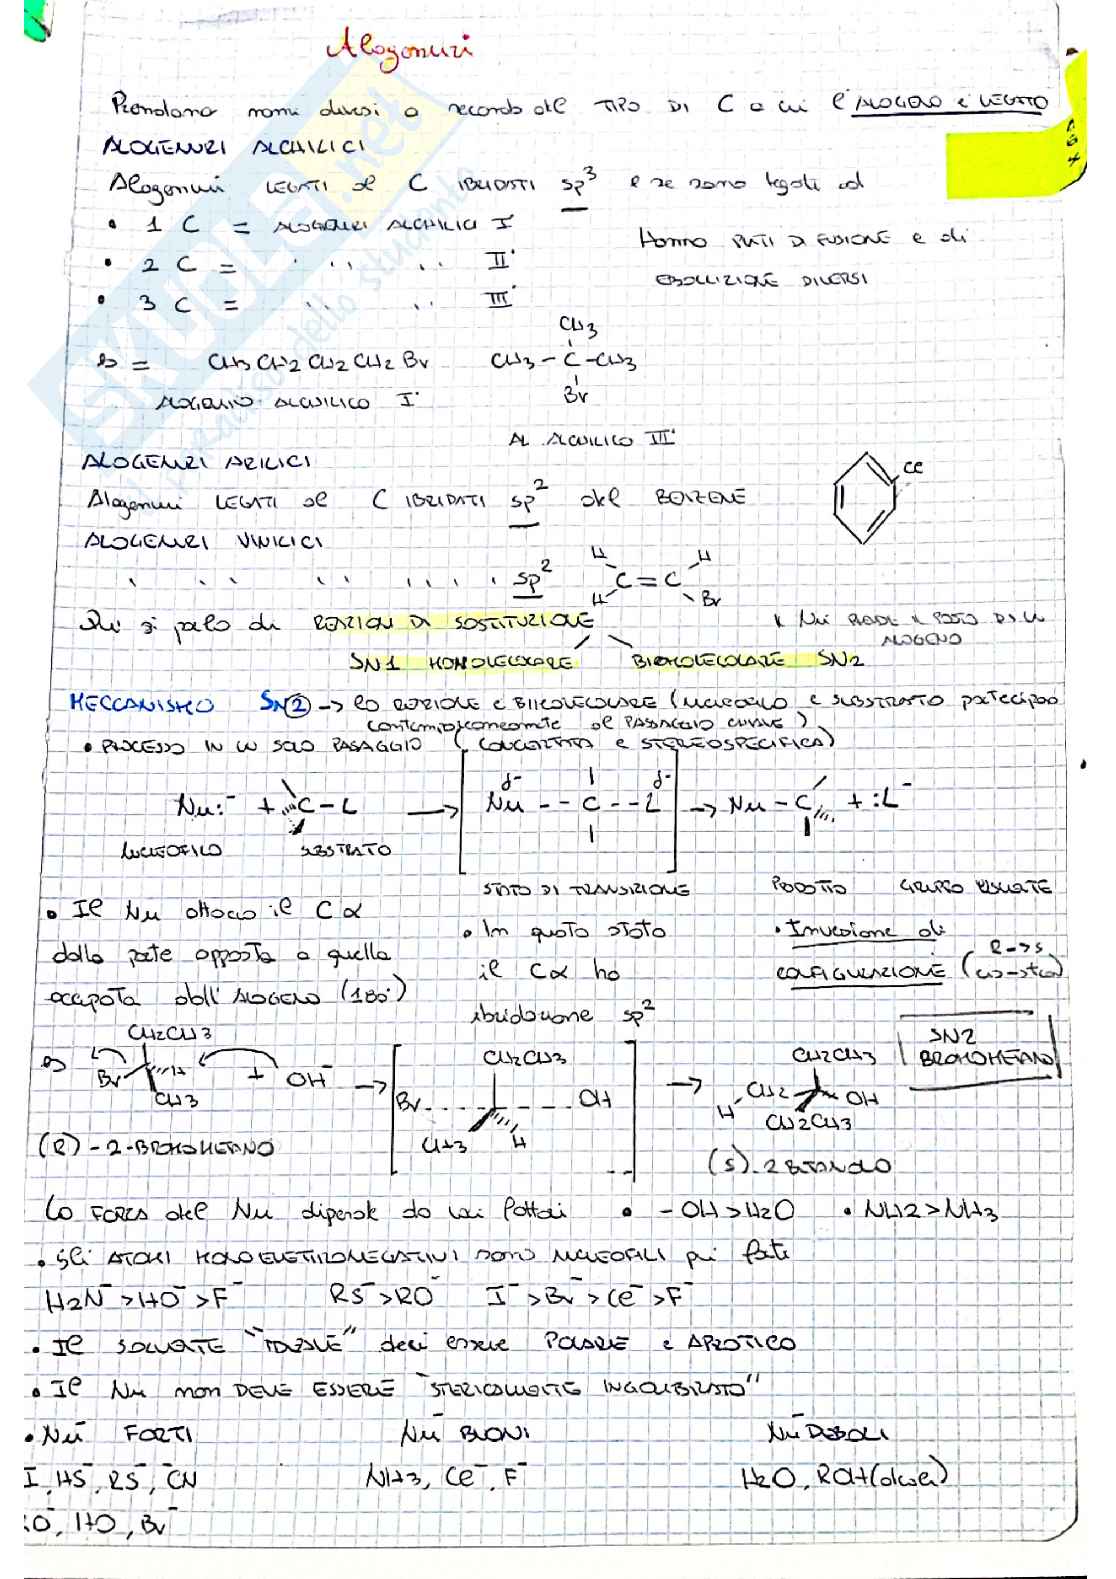 Alogenuri
Prendono nomi diversi a seconda del TIPO DI C a cui l'ALOGENO è LEGATO
ALOGENURI ALCHILICI
Alogenuri LEGATI al C IBRIDATI sp3 e se sono legati ad
• 1 C = ALOGENURI ALCHILICI I°
Hanno PUNTI DI FUSIONE e di
• 2 C = " " " II°
EBOLLIZIONE DIVERSI
• 3 C = " " " III°
CH3
es = CH3 CH2 CH2 CH2 Br CH3 - C - CH3
Br
ALOGENURO ALCHILICO I°
AL ALCHILICO III°
ALOGENURI ARILICI
Cl
Alogenuri LEGATI al C IBRIDATI sp2 del BENZENE
ALOGENURI VINILICI
H H
" " " " " " sp2 C = C
H Br
Qui si parla di REAZIONI DI SOSTITUZIONE
Il Nu PRENDE IL POSTO DI UN
ALOGENO
SN1 MONOMOLECOLARE BIMOLECOLARE SN2
MECCANISMO SN2 -> la REAZIONE è BIMOLECOLARE (NUCLEOFILO e SUBSTRATO partecipano
contemporaneamente al PASSAGGIO CHIAVE)
• PROCESSO IN UN SOLO PASSAGGIO (CONCERTATA e STEREOSPECIFICA)
Nu:- + C - L -> Nu δ- -- C -- L δ- -> Nu - C + :L-
NUCLEOFILO SUBSTRATO
STATO DI TRANSIZIONE PRODOTTO GRUPPO USCENTE
• Il Nu attacca il Cα
• In questo stato
• Inversione di
dalla parte opposta a quella
il Cα ha
CONFIGURAZIONE (R->S
cis-trans)
occupata dall'ALOGENO (180°)
ibridazione sp2
CH2CH3
es Br H + OH-
CH3
->
CH2CH3
Br ---- ---- OH
CH3 H
->
CH2CH3
OH
H
CH2
CH2CH3
SN2
BROMOMETANO
(R) - 2 - BROMOMETANO
(S) - 2 BUTANOLO
La FORZA del Nu dipende da vari fattori • -OH > H2O • NH2 > NH3
• Gli ATOMI MENO ELETTRONEGATIVI sono NUCLEOFILI più forti
H2N- > HO- > F- RS- > RO- I- > Br- > Cl- > F-
• Il SOLVENTE "IDEALE" deve essere POLARE e APROTICO
• Il Nu non DEVE ESSERE "STERICAMENTE INGOMBRATO"
• Nu- FORTI Nu- BUONI Nu- DEBOLI
I, HS-, RS-, -CN NH3, Cl-, F- H2O, ROH (alcoli)
RO-, HO-, Br-
SKUOLA.net
il paradiso dello studente